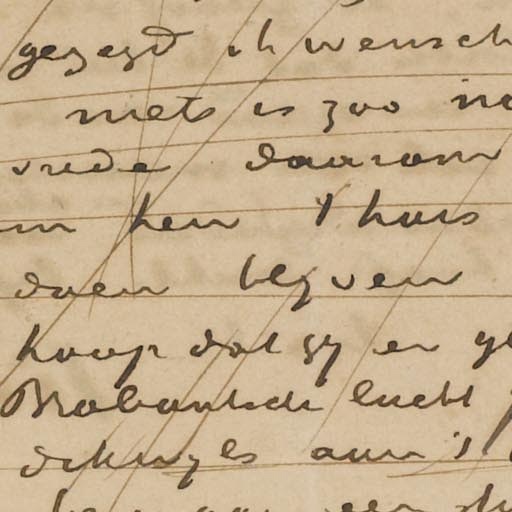 gezegd ik wensch
niets is zoo
vrede daarom
hen thuis
doen blyven
hoop dat gy er
Brabantsche lucht
aan 's